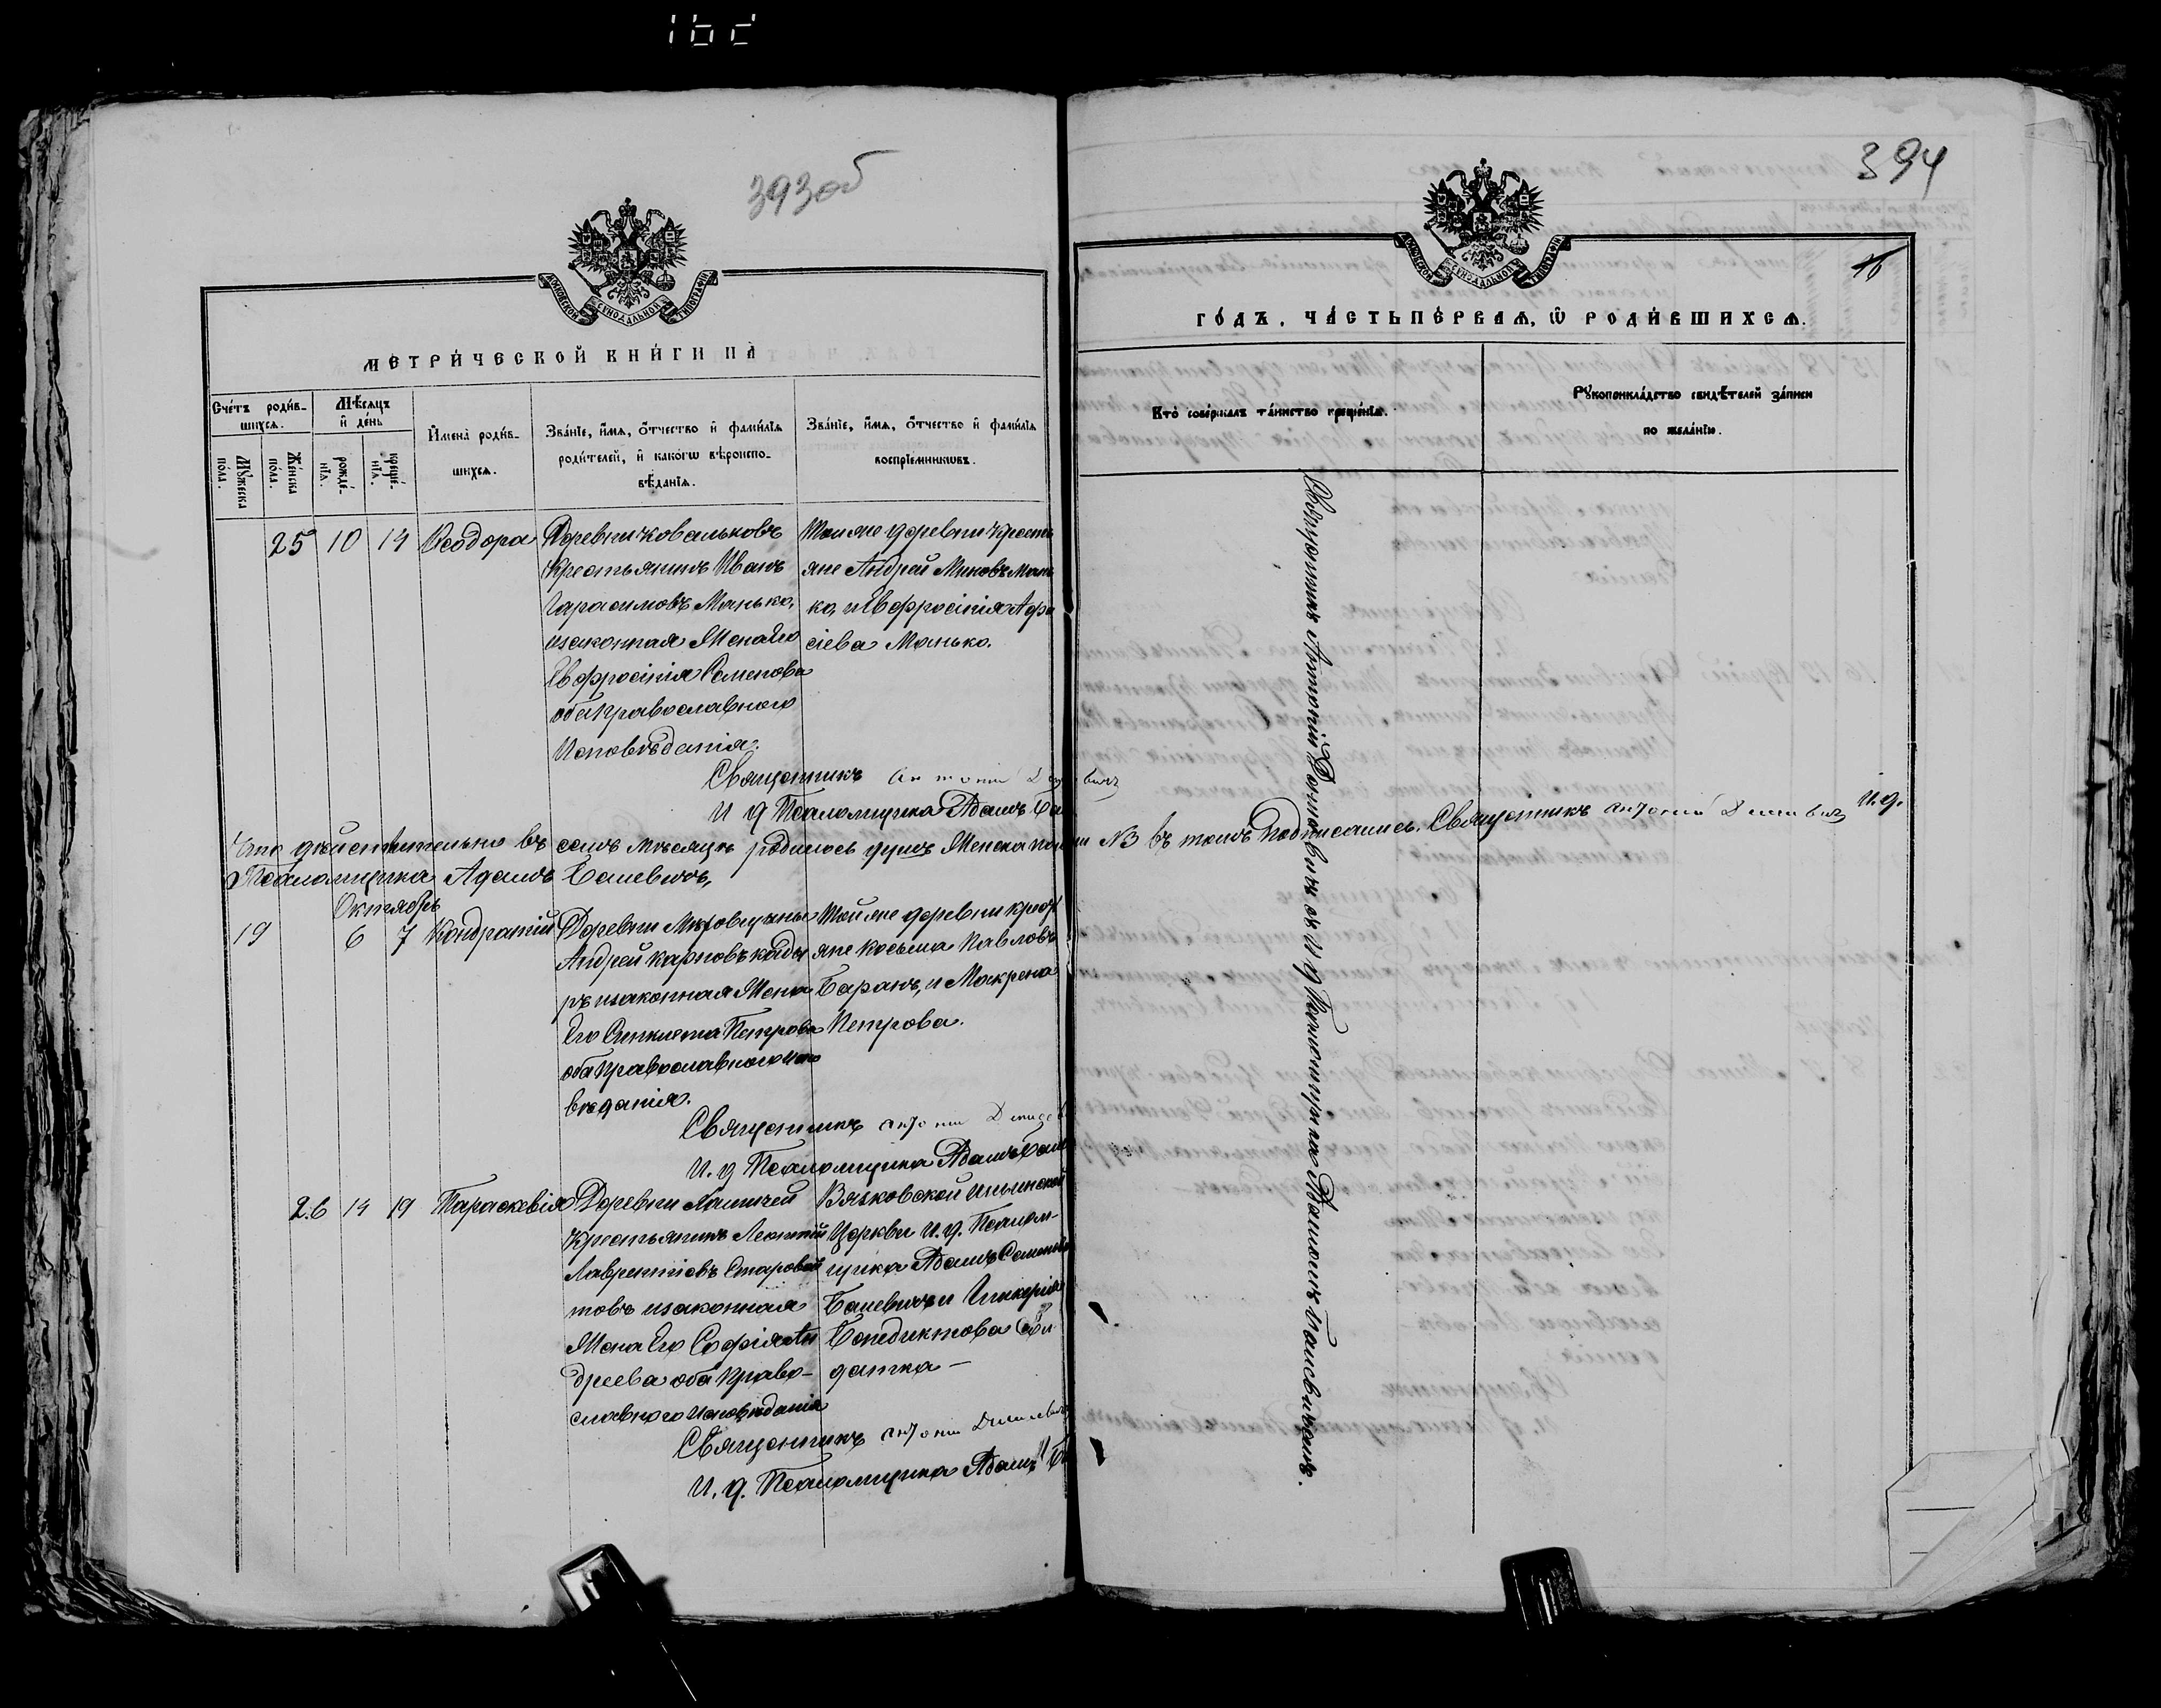 393 об
МОСКОВСКОЙ СѴНОДАЛЬНОЙ ТИПОГРАФІИ
МЕТРИ́ЧЕСКОЙ КНИ́ГИ НА̀
Сче́тъ роди́в-
шихсѧ.
Мѣ́сѧцъ
и҆ де́нь
Мꙋ́жеска
по́ла.
Же́нска
по́ла.
рожде́-
нїѧ.
креще́-
нїѧ.
И҆мена̀ роди́в-
шихсѧ.
Зва́нїе, и҆́мѧ, ѻ҆́тчество и҆ фамі́лїѧ
роди́телей, и҆ како́гѡ вѣроиспо-
вѣ́данїѧ.
Зва́нїе, и҆́мѧ, ѻ҆́тчество и҆ фамі́лїѧ
воспрїе́мникѡвъ.
25 10 14 Ѳеодора
Деревни Ковальковъ
Крестьянинъ Иванъ
Гарасимовъ Манько,
и законная Жена Его
Евфросінія Семенова
оба Православного
Исповѣданія.
Той же деревни Кресть
яне Андрей Миновъ Мань
ко, и Евфросінія Афа
сіева Манько.
Священникъ Антоній
И д Псаломщика Адамъ
Что дѣйствительно въ семъ мѣсяцѣ родилось душъ Женска пола №3 въ томъ Подписались. Священникъ Антоній И.д.
Псаломщика Адамъ Баневичъ,
Октябрь
19 6 7 Кондратій
Деревни
Андрей Карповъ
ръ и законная Жена
Его Петрова
оба Православного Испо
вѣданія.
Той же деревни Крест
яне Косьма Павловъ
Баранъ, и Макрена
Петрова.
Священникъ Антоній
И. д Псаломщика Адамъ
26 14 19 Параскевія
Деревни
Крестьянинъ Леонтій
Лаврентіевъ Старовой
товъ и законная
Жена Его Софія Ан
дреева оба Право-
славного Исповѣданія
Вязковской Ильинской
Церкви И. д. Псалом-
щика Адамъ Семеновъ
Баневичъ и Гликерія
Бенедиктова Сол
датка —
Священникъ Антоній
И. д. Псаломщика Адамъ
394
16
МОСКОВСКОЙ СѴНОДАЛЬНОЙ ТИПОГРАФІИ
ГО́ДЪ, ЧА́СТЬ ПЕ́РВАЯ, Ѽ РОДИ́ВШИХСЯ.
Кто̀ соверша́лъ та́инство креще́нїѧ.
Рꙋкоприкла́дство свидѣ́телей за́писи
по жела́нїю.
Священникъ Антоній съ И д Псаломщика Адамомъ Баневичемъ.